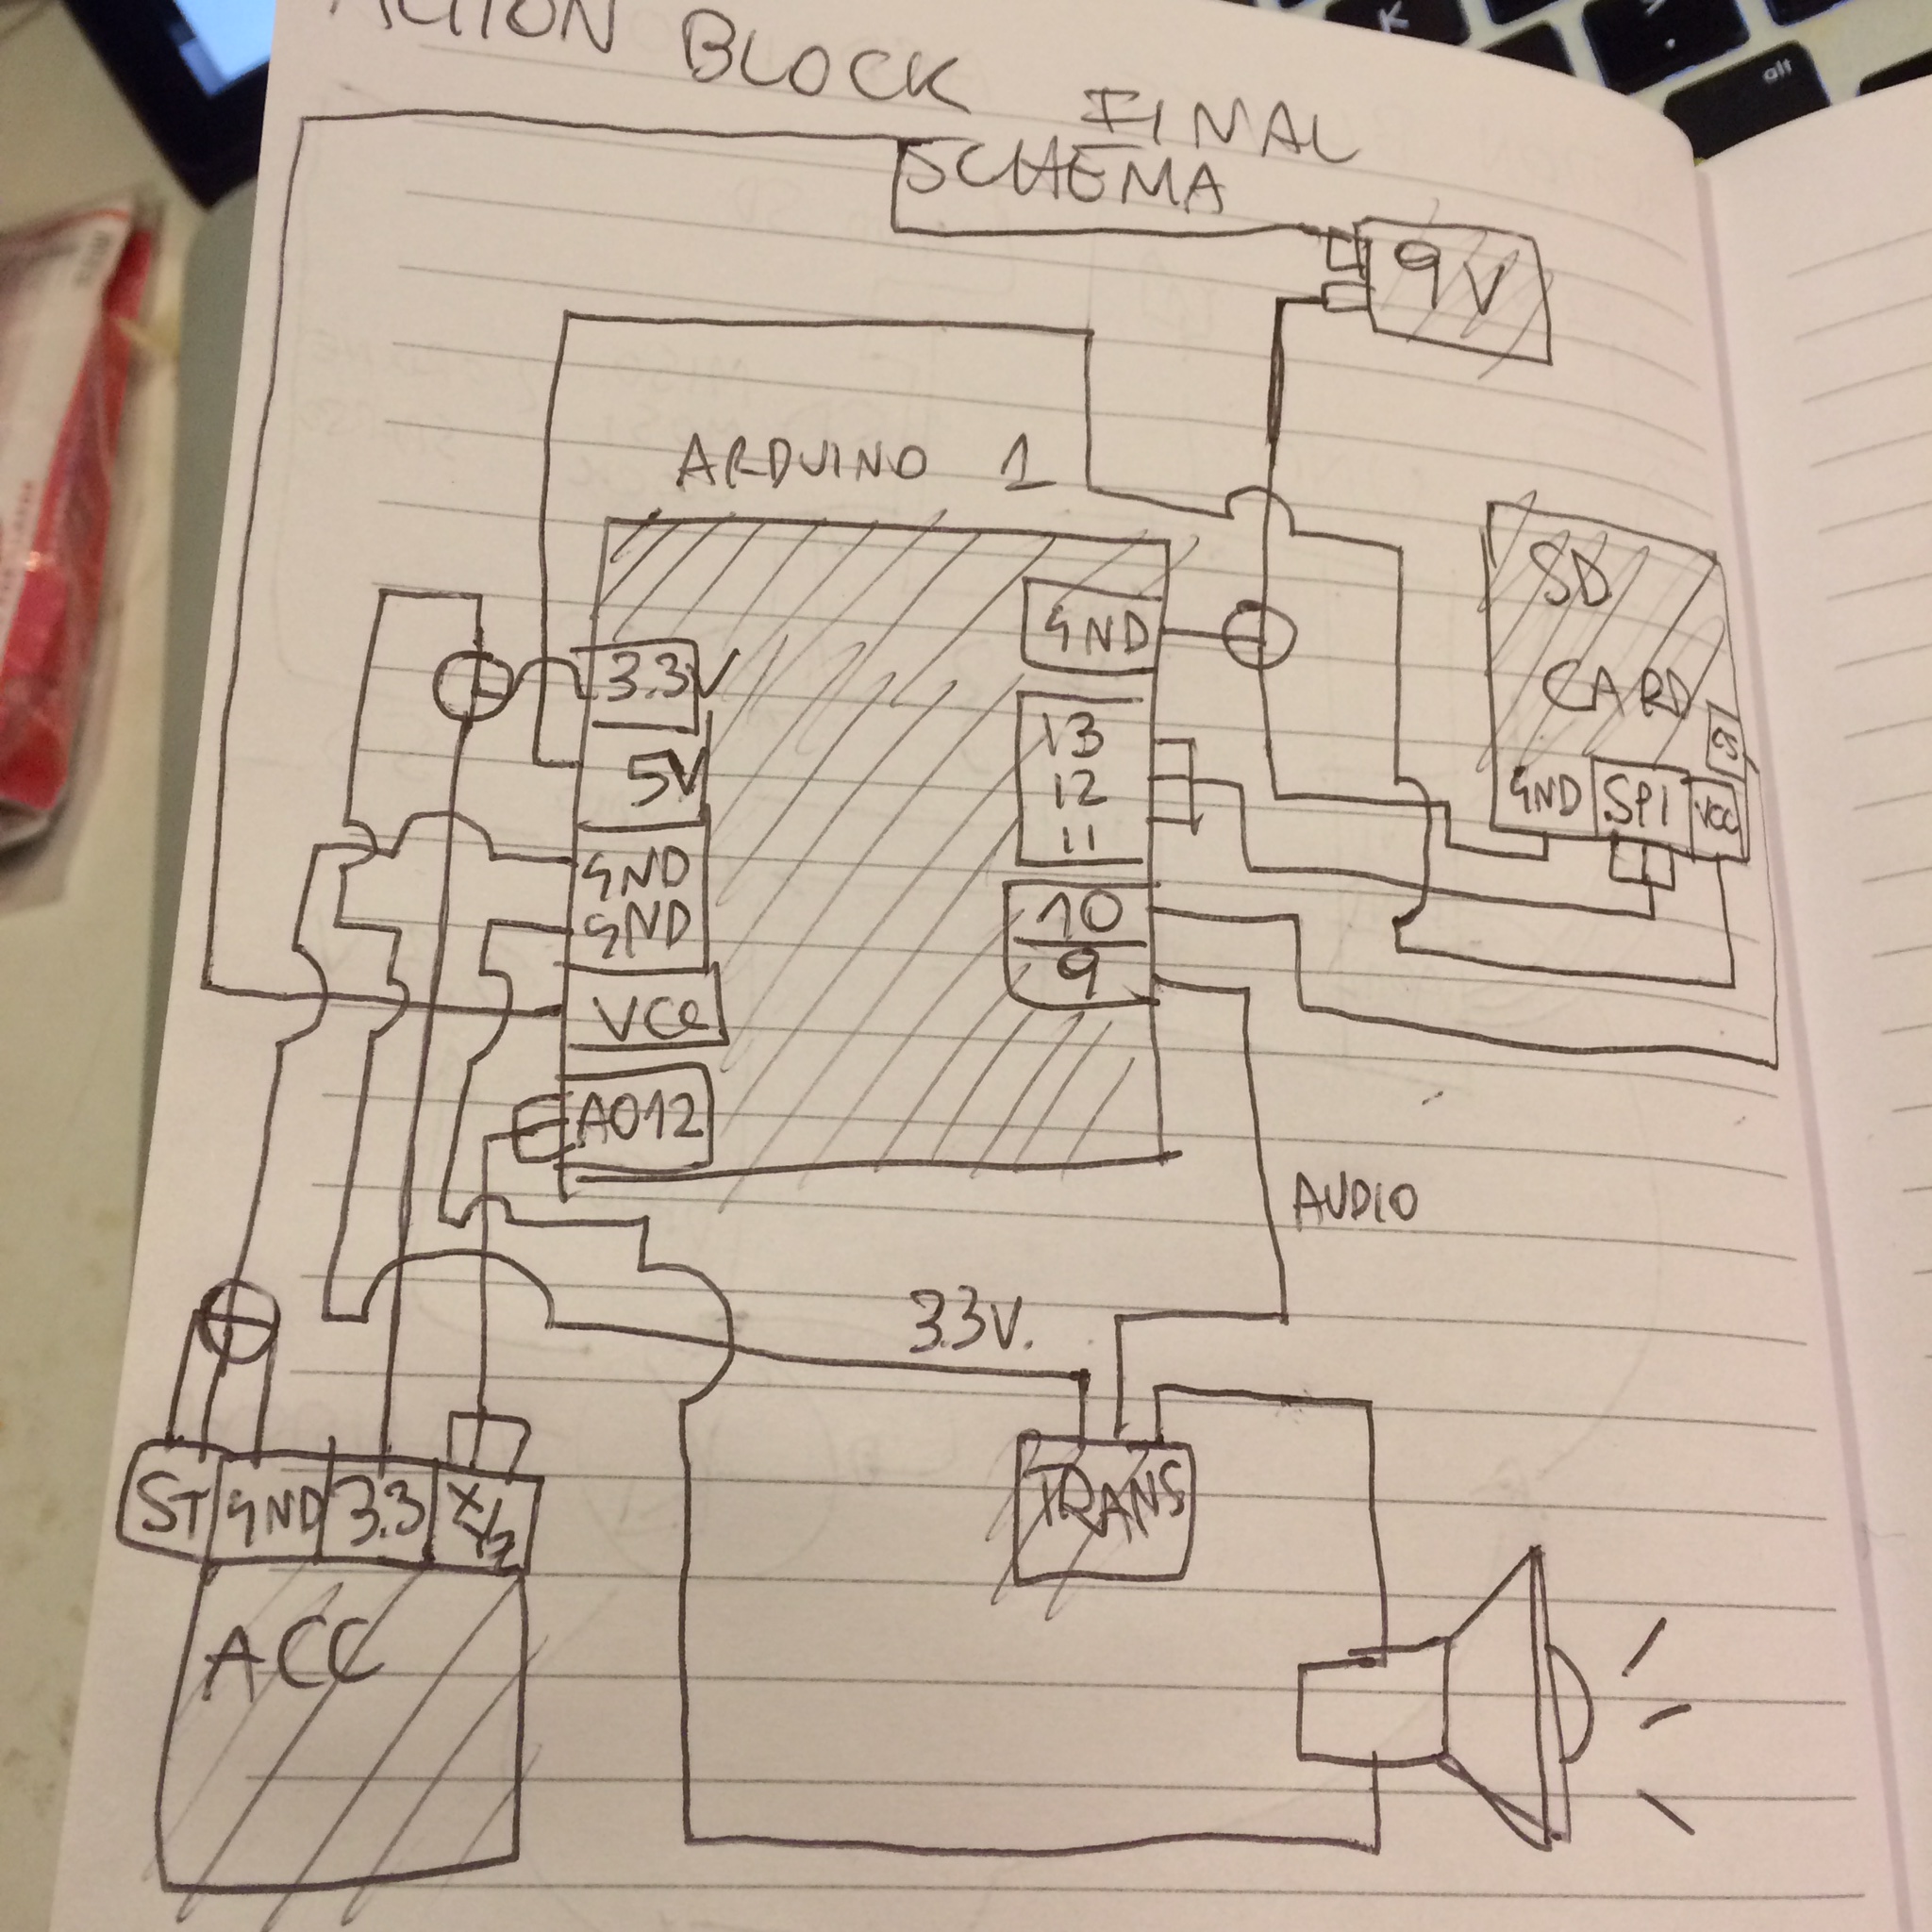 ACTION BLOCK FINAL
SCHEMA
9V
ARDUINO 1
SD
CARD
CS
GND SPI VCC
3.3V
5V
GND
GND
VCC
A012
GND
13
12
11
10
9
AUDIO
3.3V.
TRANS
ST GND 3.3 X/Y/Z
ACC
K
alt